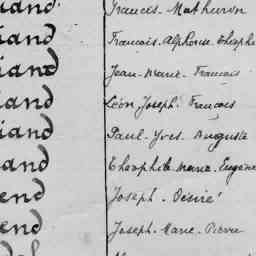 iand. Francois - Mathurin
iand François. Alphonse. Théophe
iand Jean - Marie - François
iand Léon. Joseph. François
iand Paul - Yves - Auguste
and Théophile. Marie. Eugène
end Joseph - Désiré
end Joseph. Marie. Pierre